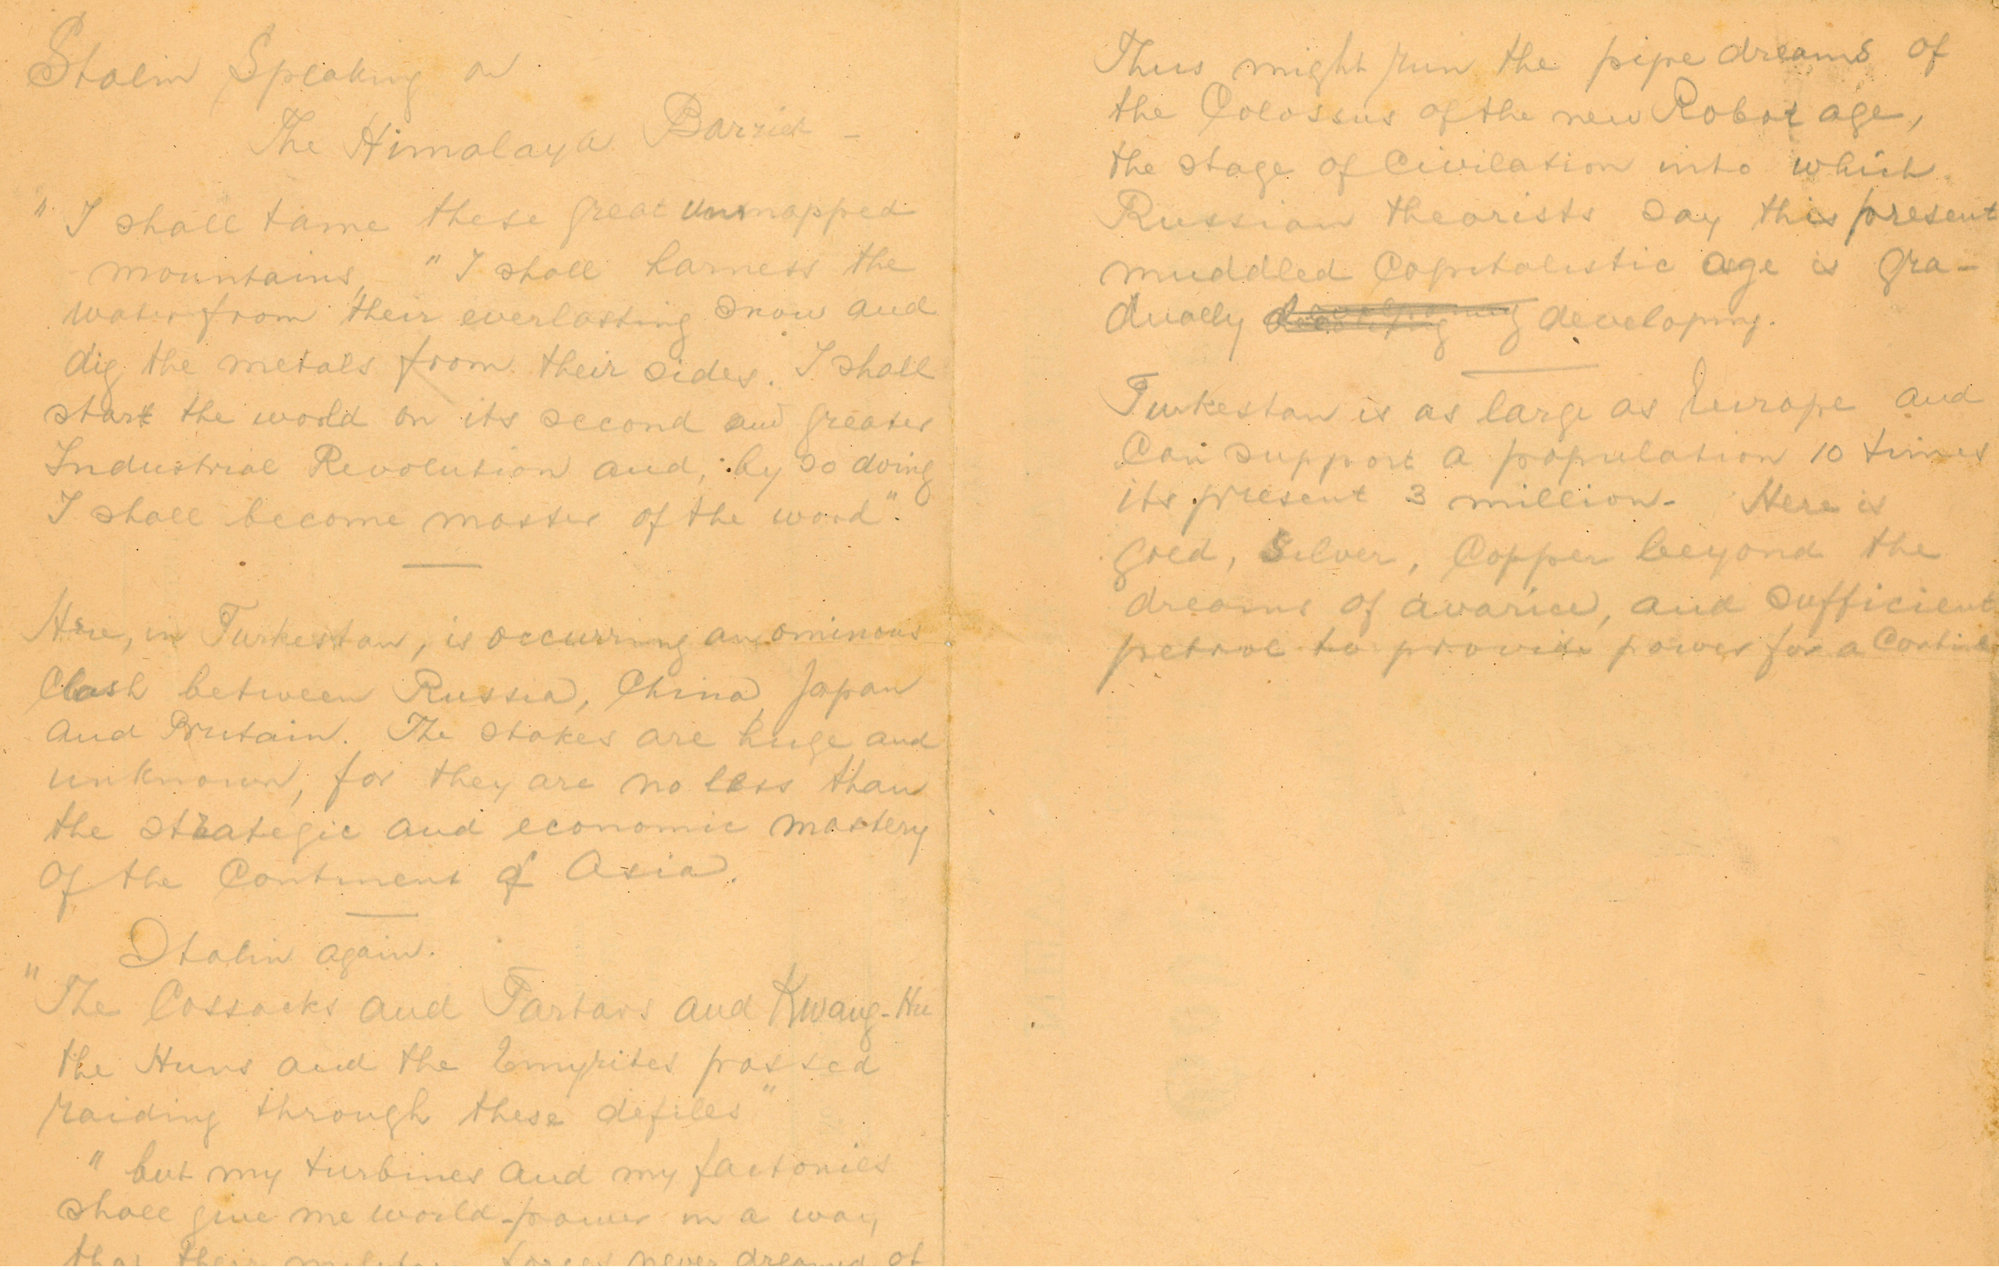 Stalin Speaking on
The Himalaya Barrier -
"I shall tame these great unmapped
mountains, "I shall harness the
water from their everlasting snow and
dig the metals from their sides. I shall
start the world on its second and greater
Industrial Revolution and, by so doing
I shall become master of the word".
Here, in Turkestan, is occurring an ominous
Clash between Russia, China, Japan
and Britain. The stakes are huge and
unknown, for they are no less than
the strategic and economic mastery
Of the Continent of Asia.
Stalin again.
"The Cossacks and Tartars and Kwang-Hu
the Huns and the passed
raiding through these defiles"
"but my turbines and my factories
shall give me world-power in a way
that their military forces never dreamed of
Thus might run the pipe dreams of
the Colossus of the new Robot age,
the stage of Civilation into which
Russian theorists say this present
muddled Capitalistic age is gra-
dually developing.
Turkestan is as large as Europe and
Can support a population 10 times
its present 3 million. Here is
gold, Silver, Copper beyond the
dreams of avarice, and sufficient
petrol to provide power for a